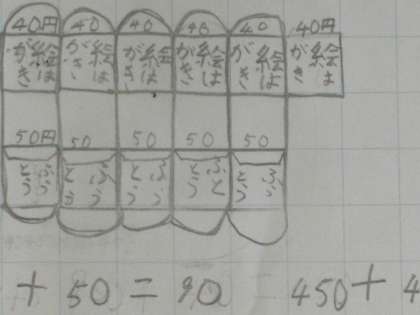 40円 40 40 40 40 40円
絵はがき 絵はがき 絵はがき 絵はがき 絵はがき 絵はがき
50円 50 50 50 50
ふうとう ふうとう ふうとう ふうとう ふうとう
+ 50 = 90 450 + 4